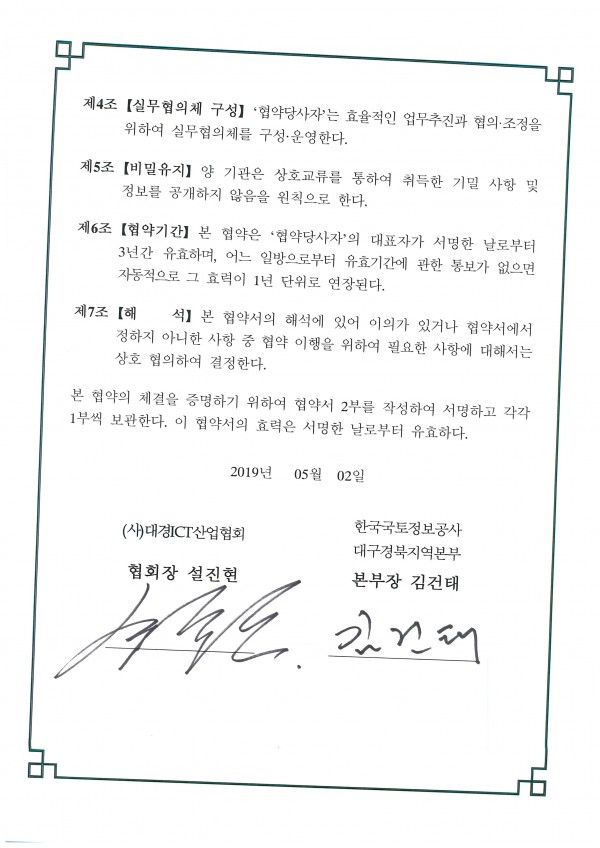 제4조 【실무협의체 구성】 ‘협약당사자’는 효율적인 업무추진과 협의·조정을
위하여 실무협의체를 구성·운영한다.
제5조 【비밀유지】 양 기관은 상호교류를 통하여 취득한 기밀 사항 및
정보를 공개하지 않음을 원칙으로 한다.
제6조 【협약기간】 본 협약은 ‘협약당사자’의 대표자가 서명한 날로부터
3년간 유효하며, 어느 일방으로부터 유효기간에 관한 통보가 없으면
자동적으로 그 효력이 1년 단위로 연장된다.
제7조 【해 석】 본 협약서의 해석에 있어 이의가 있거나 협약서에서
정하지 아니한 사항 중 협약 이행을 위하여 필요한 사항에 대해서는
상호 협의하여 결정한다.
본 협약의 체결을 증명하기 위하여 협약서 2부를 작성하여 서명하고 각각
1부씩 보관한다. 이 협약서의 효력은 서명한 날로부터 유효하다.
2019년 05월 02일
(사)대경ICT산업협회
협회장 설진현
한국국토정보공사
대구경북지역본부
본부장 김건태
김건태